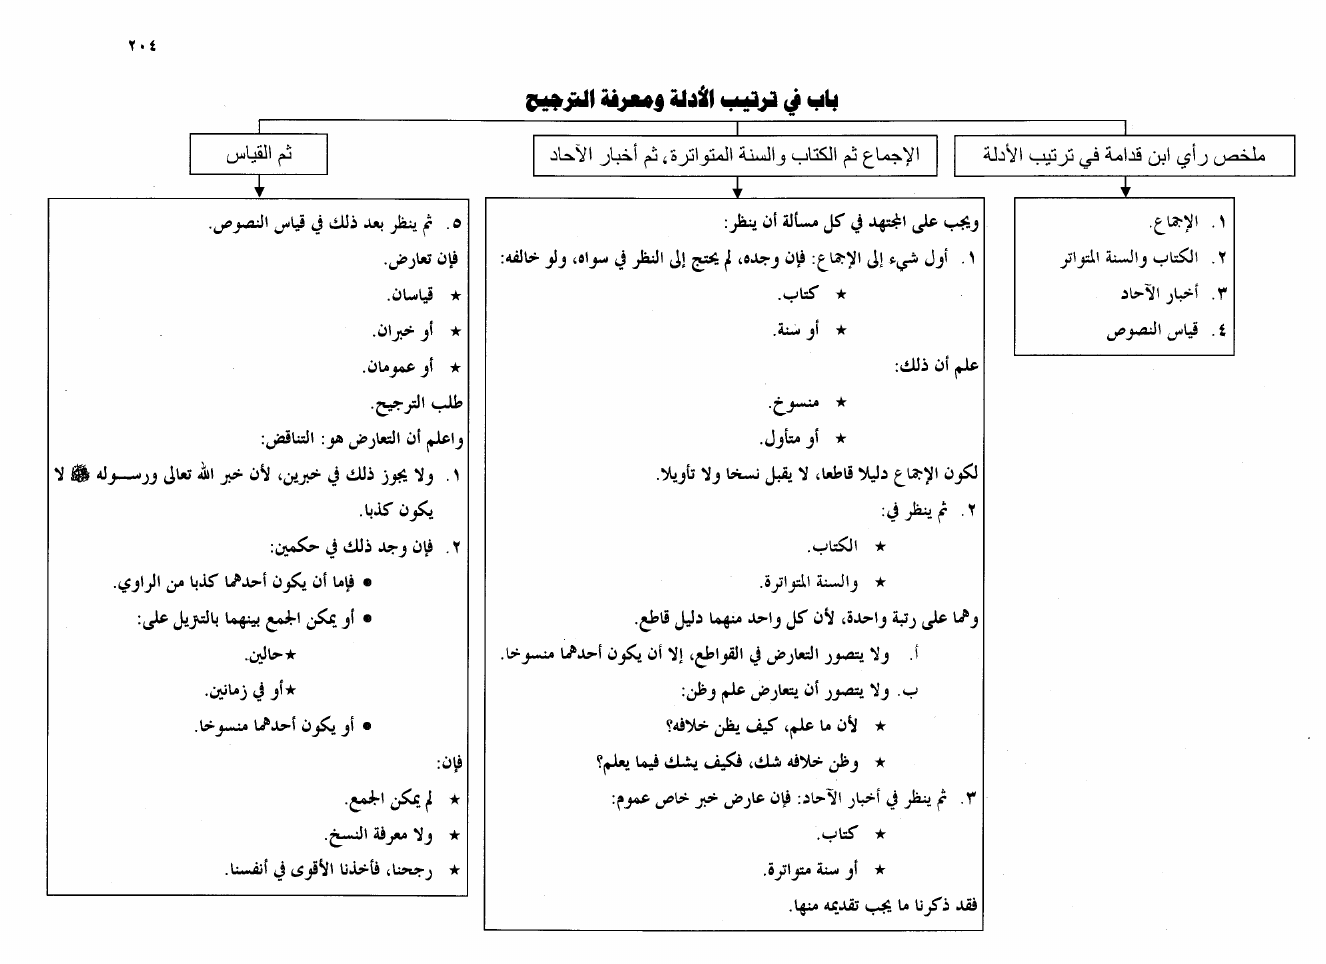 ٢٠٤
باب في ترتيب الأدلة ومعرفة الترجيح
ملخص رأي ابن قدامة في ترتيب الأدلة
١. الإجماع.
٢. الكتاب والسنة المتواتر
٣. أخبار الآحاد
٤. قياس النصوص
الإجماع ثم الكتاب والسنة المتواترة، ثم أخبار الآحاد
ويجب على المجتهد في كل مسألة أن ينظر:
١. أول شيء إلى الإجماع: فإن وجده، لم يحتج إلى النظر في سواه، ولو خالفه:
★ كتاب.
★ أو سنة.
علم أن ذلك:
★ منسوخ.
★ أو متأول.
لكون الإجماع دليلا قاطعا، لا يقبل نسخا ولا تأويلا.
٢. ثم ينظر في:
★ الكتاب.
★ والسنة المتواترة.
وهما على رتبة واحدة، لأن كل واحد منهما دليل قاطع.
أ. ولا يتصور التعارض في القواطع، إلا أن يكون أحدهما منسوخا.
ب. ولا يتصور أن يتعارض علم وظن:
★ لأن ما علم، كيف يظن خلافه؟
★ وظن خلافه شك، فكيف يشك فيما يعلم؟
٣. ثم ينظر في أخبار الآحاد: فإن عارض خبر خاص عموم:
★ كتاب.
★ أو سنة متواترة.
فقد ذكرنا ما يجب تقديمه منها.
ثم القياس
٥. ثم ينظر بعد ذلك في قياس النصوص.
فإن تعارض.
★ قياسان.
★ أو خبران.
★ أو عمومان.
طلب الترجيح.
واعلم أن التعارض هو: التناقض:
١. ولا يجوز ذلك في خبرين، لأن خبر الله تعالى ورسوله ﷺ لا
يكون كذبا.
٢. فإن وجد ذلك في حكمين:
● فإما أن يكون أحدهما كذبا من الراوي.
● أو يمكن الجمع بينهما بالتنزيل على:
★حالين.
★أو في زمانين.
● أو يكون أحدهما منسوخا.
فإن:
★ لم يمكن الجمع.
★ ولا معرفة النسخ.
★ رجحنا، فأخذنا الأقوى في أنفسنا.